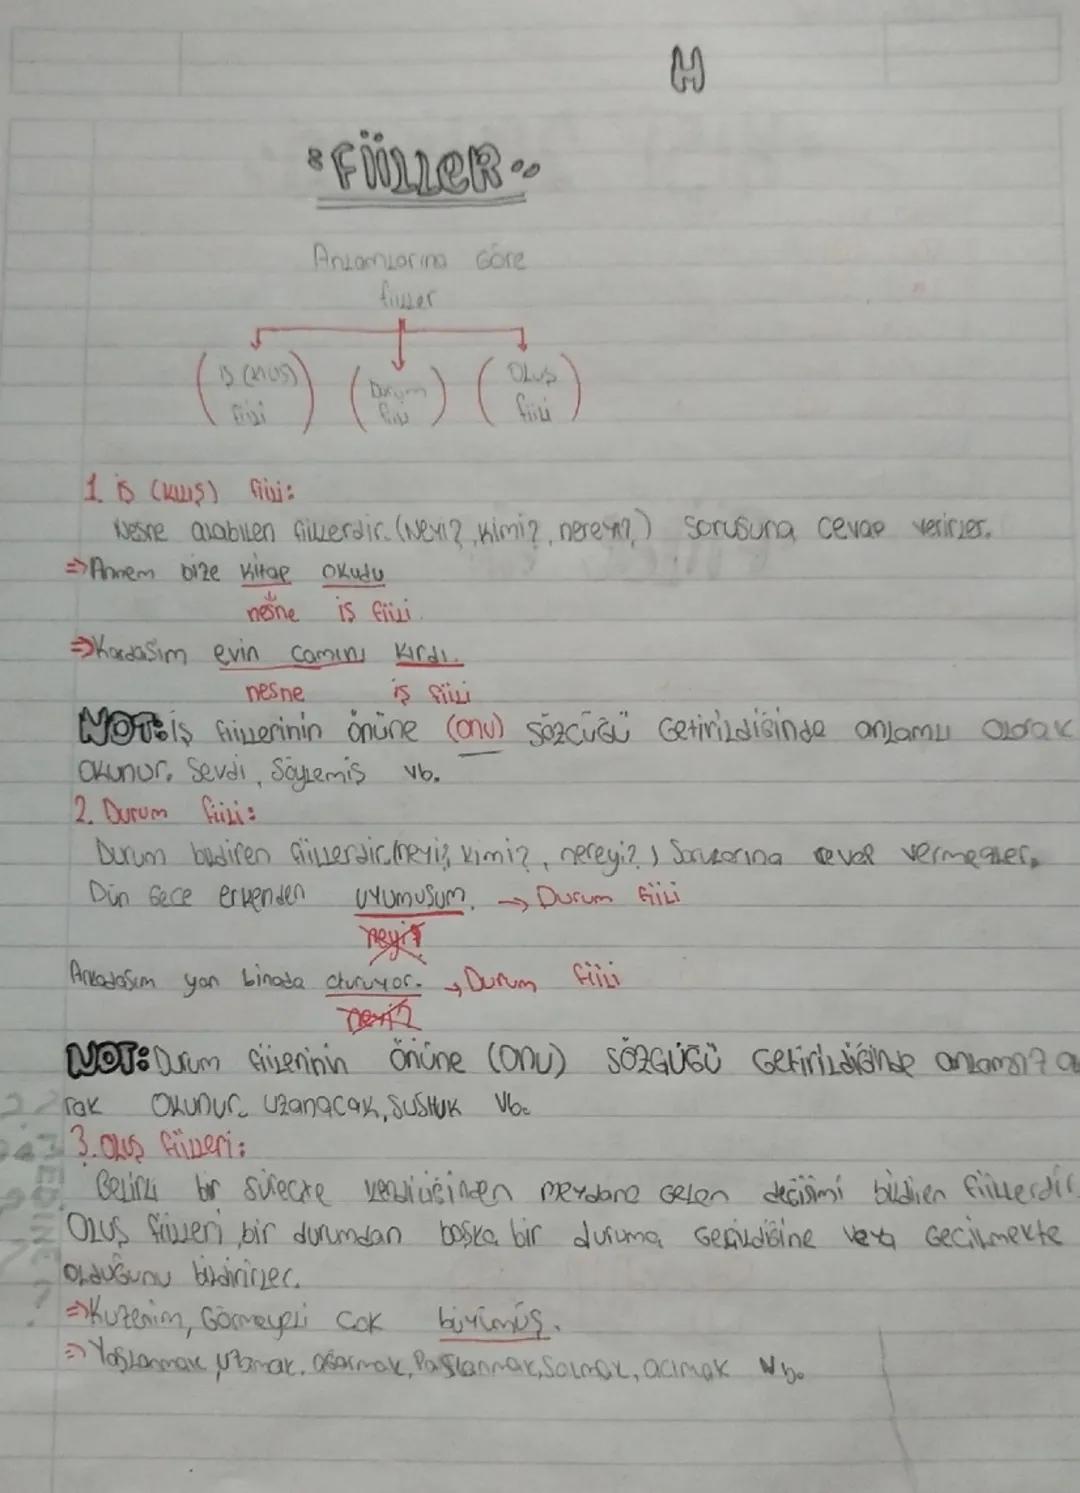 H
FİİLLER
Anlamlarına Göre
fiiller
İş (kılış) fiili
Durum fiili
Oluş fiili
1. İş (kılış) fiili:
Nesne alabilen fiillerdir. (Neyi?, kimi?, nereyi?) sorusuna cevap verirler.
⇒ Annem bize kitap okudu
nesne iş fiili
⇒ Kardaşım evin camını kırdı.
nesne iş fiili
NOT: İş fiillerinin önüne (onu) sözcüğü getirildiğinde anlamlı olarak
okunur. Sevdi, Söylemiş vb.
2. Durum fiili:
Durum bildiren fiillerdir. (neyi?, kimi?, nereyi?) Sorularına cevap vermezler.
Dün gece erkenden uyumuşum. → Durum fiili
neyi?
Arkadaşım yan binada oturuyor. → Durum fiili
neyi?
NOT: Durum fiillerinin önüne (onu) SÖZGÜĞÜ getirildiğinde anlamsız ola
rak okunur. Uzanacak, sustuk vb.
3. Oluş fiilleri:
Belirli bir süreçte kendiliğinden meydana gelen değişimi bildien fiillerdir.
Oluş fiilleri, bir durumdan başka bir duruma geçildiğine veya geçilmekte
olduğunu bildirirler.
⇒ Kuzenim, Görmeyeli çok büyümüş.
⇒ Yaşlanmak, uzamak, ağarmak, Paslanmak, Solmak, acımak vb.